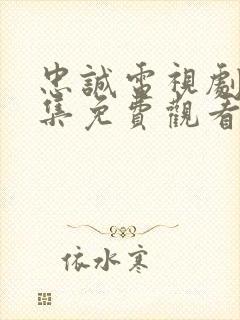 忠誠電視劇
集免費觀看
依水寒